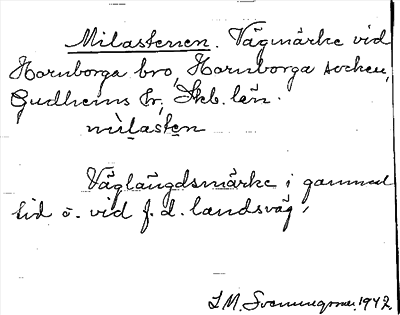 Milastenen. Vägmärke vid
Hornborga bro, Hornborga socken,
Gudhems hr, Skb. län.
mìlastęn
Väglängdsmärke i gammal
tid o. vid f. d. landsväg,
1942.